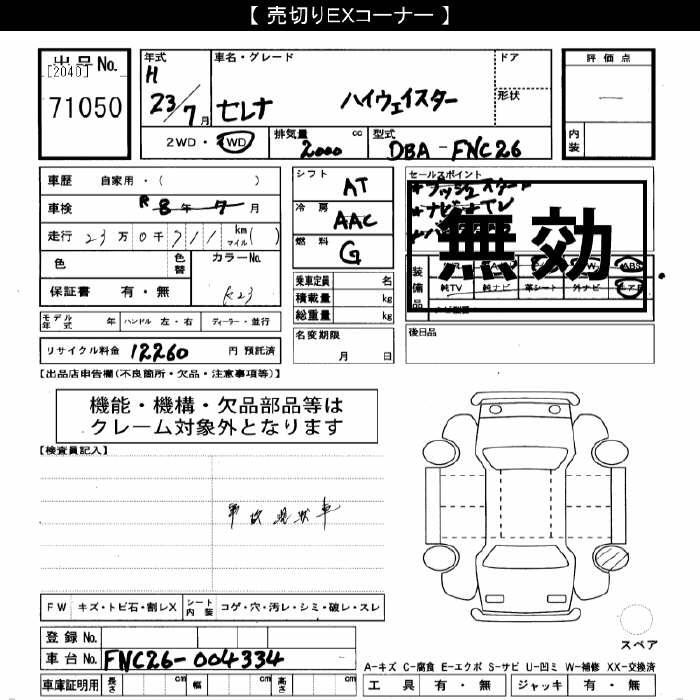 【 売切りEXコーナー 】
出品No.
[204D]
71050
年式
H
23/7月
車名・グレード
セレナ ハイウェイスター
ドア
形状
評価点
―
内装
2WD・4WD
排気量 cc
2000
型式
DBA-FNC26
車歴 自家用・( )
車検 R 8年 7月
走行 23万0千711 km マイル( )
色
色替
カラーNo.
K23
保証書 有・無
シフト AT
冷房 AAC
燃料 G
乗車定員 名
積載量 kg
総重量 kg
名変期限
月 日
セールスポイント
無効
装備品
ABS
純TV 純ナビ 革シート 外ナビ エアB
後日品
モデル年式 年 ハンドル 左・右 ディーラー・並行
リサイクル料金 12260 円 預託済
【出品店申告欄(不良箇所・欠品・注意事項等)】
機能・機構・欠品部品等は
クレーム対象外となります
【検査員記入】
事故現状車
FW キズ・トビ石・割レX シート内装 コゲ・穴・汚レ・シミ・破レ・スレ
登録No.
車台No. FNC26-004334
車庫証明用 長さ cm 幅 cm 高さ cm
スペア
A-キズ C-腐食 E-エクボ S-サビ U-凹ミ W-補修 XX-交換済
工具 有・無 ジャッキ 有・無